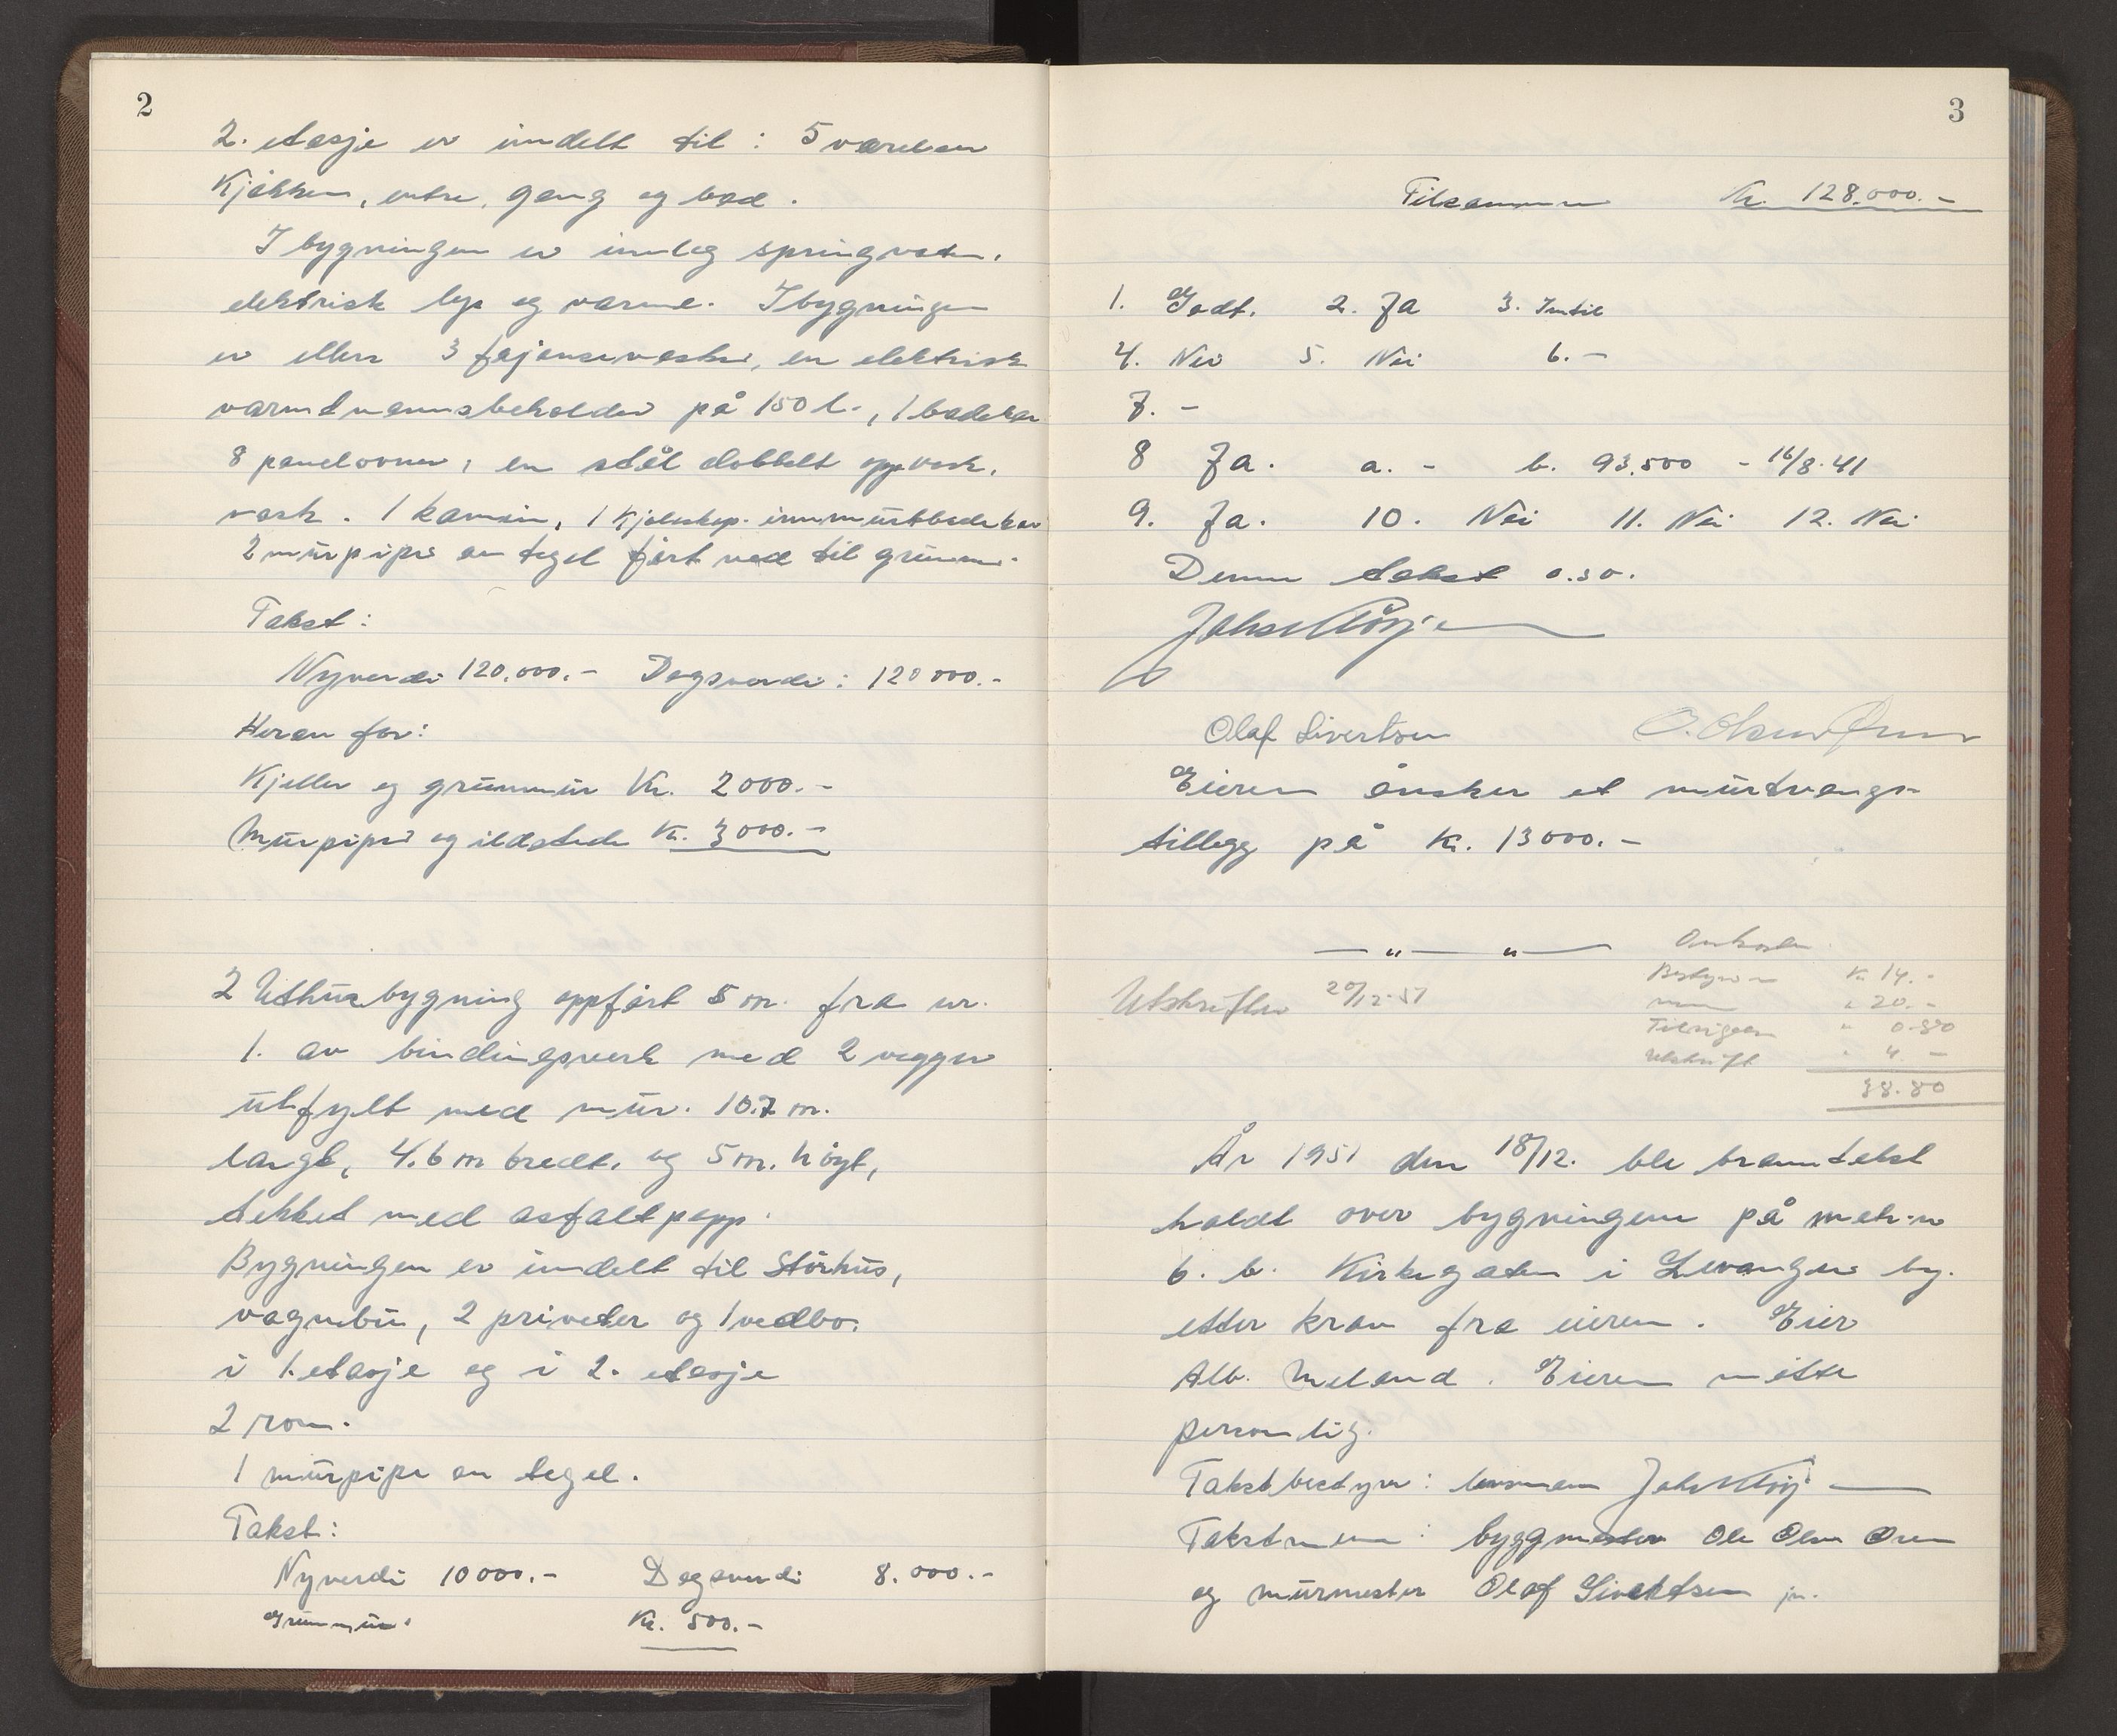 2
2. etasje er inndelt til: 5 værelser
Kjøkken, entre, gang og bad.
I bygningen er innlag springvatn,
elektrisk lys og varme. I bygningen
er ellers 3 fajansevasker, en elektrisk
varmtvannsbeholder på 150 l., 1 badekar
8 panelovner, en stål dobbelt oppvask.
vask. 1 kamin, 1 kjøleskap. innmurtbadekar
2 murpiper av tegel ført ned til grunnen.
Takst:
Nyverdi 120.000.- Dagsverdi: 120000.-
Herav for:
Kjeller og grunnmur Kr. 2000.-
Murpiper og ildsteder Kr. 3000.-
2 Uthusbygning oppført 5 m. fra nr.
1. av bindingsverk med 2 vegger
utfylt med mur. 10.7 m.
langt, 4.6 m bredt, og 5 m. høyt,
tekket med asfaltpapp.
Bygningen er inndelt til Størhus,
vognbu, 2 priveter og 1 vedbo.
i 1. etasje og i 2. etasje
2 rom.
1 murpipe av tegel.
Takst:
Nyverdi 10000.- Dagsverdi 8.000.-
Grunnmur: Kr. 500.-
3
Tilsammen Kr. 128.000.-
1. Godt. 2. Ja 3. Inntil
4. Nei 5. Nei 6. -
7. -
8 Ja. a. - b. 93.500 - 16/8.41
9. Ja. 10. Nei 11. Nei 12. Nei
Denne takst o.s.v.
Olaf Sivertsen
Eieren ønsker et murtvangs-
tillegg på Kr. 13000.-
— " — " —
Omkostn.
Utskrifter 20/12-51
Bestyrer Kr 14.-
menn " 20.-
" 0.80
Utskrift " 4.-
38.80
År 1951 den 18/12. ble branntakst
holdt over bygningene på matr.nr
6. b. Kirkegaten i Levanger by.
etter krav fra eieren. Eier
Alb. Meland. Eieren møtte
personlig.
Takstbestyrer: lensmann
Takstmenn: byggmester Ole Olsen Øren
og murmester Olaf Sivertsen jr.